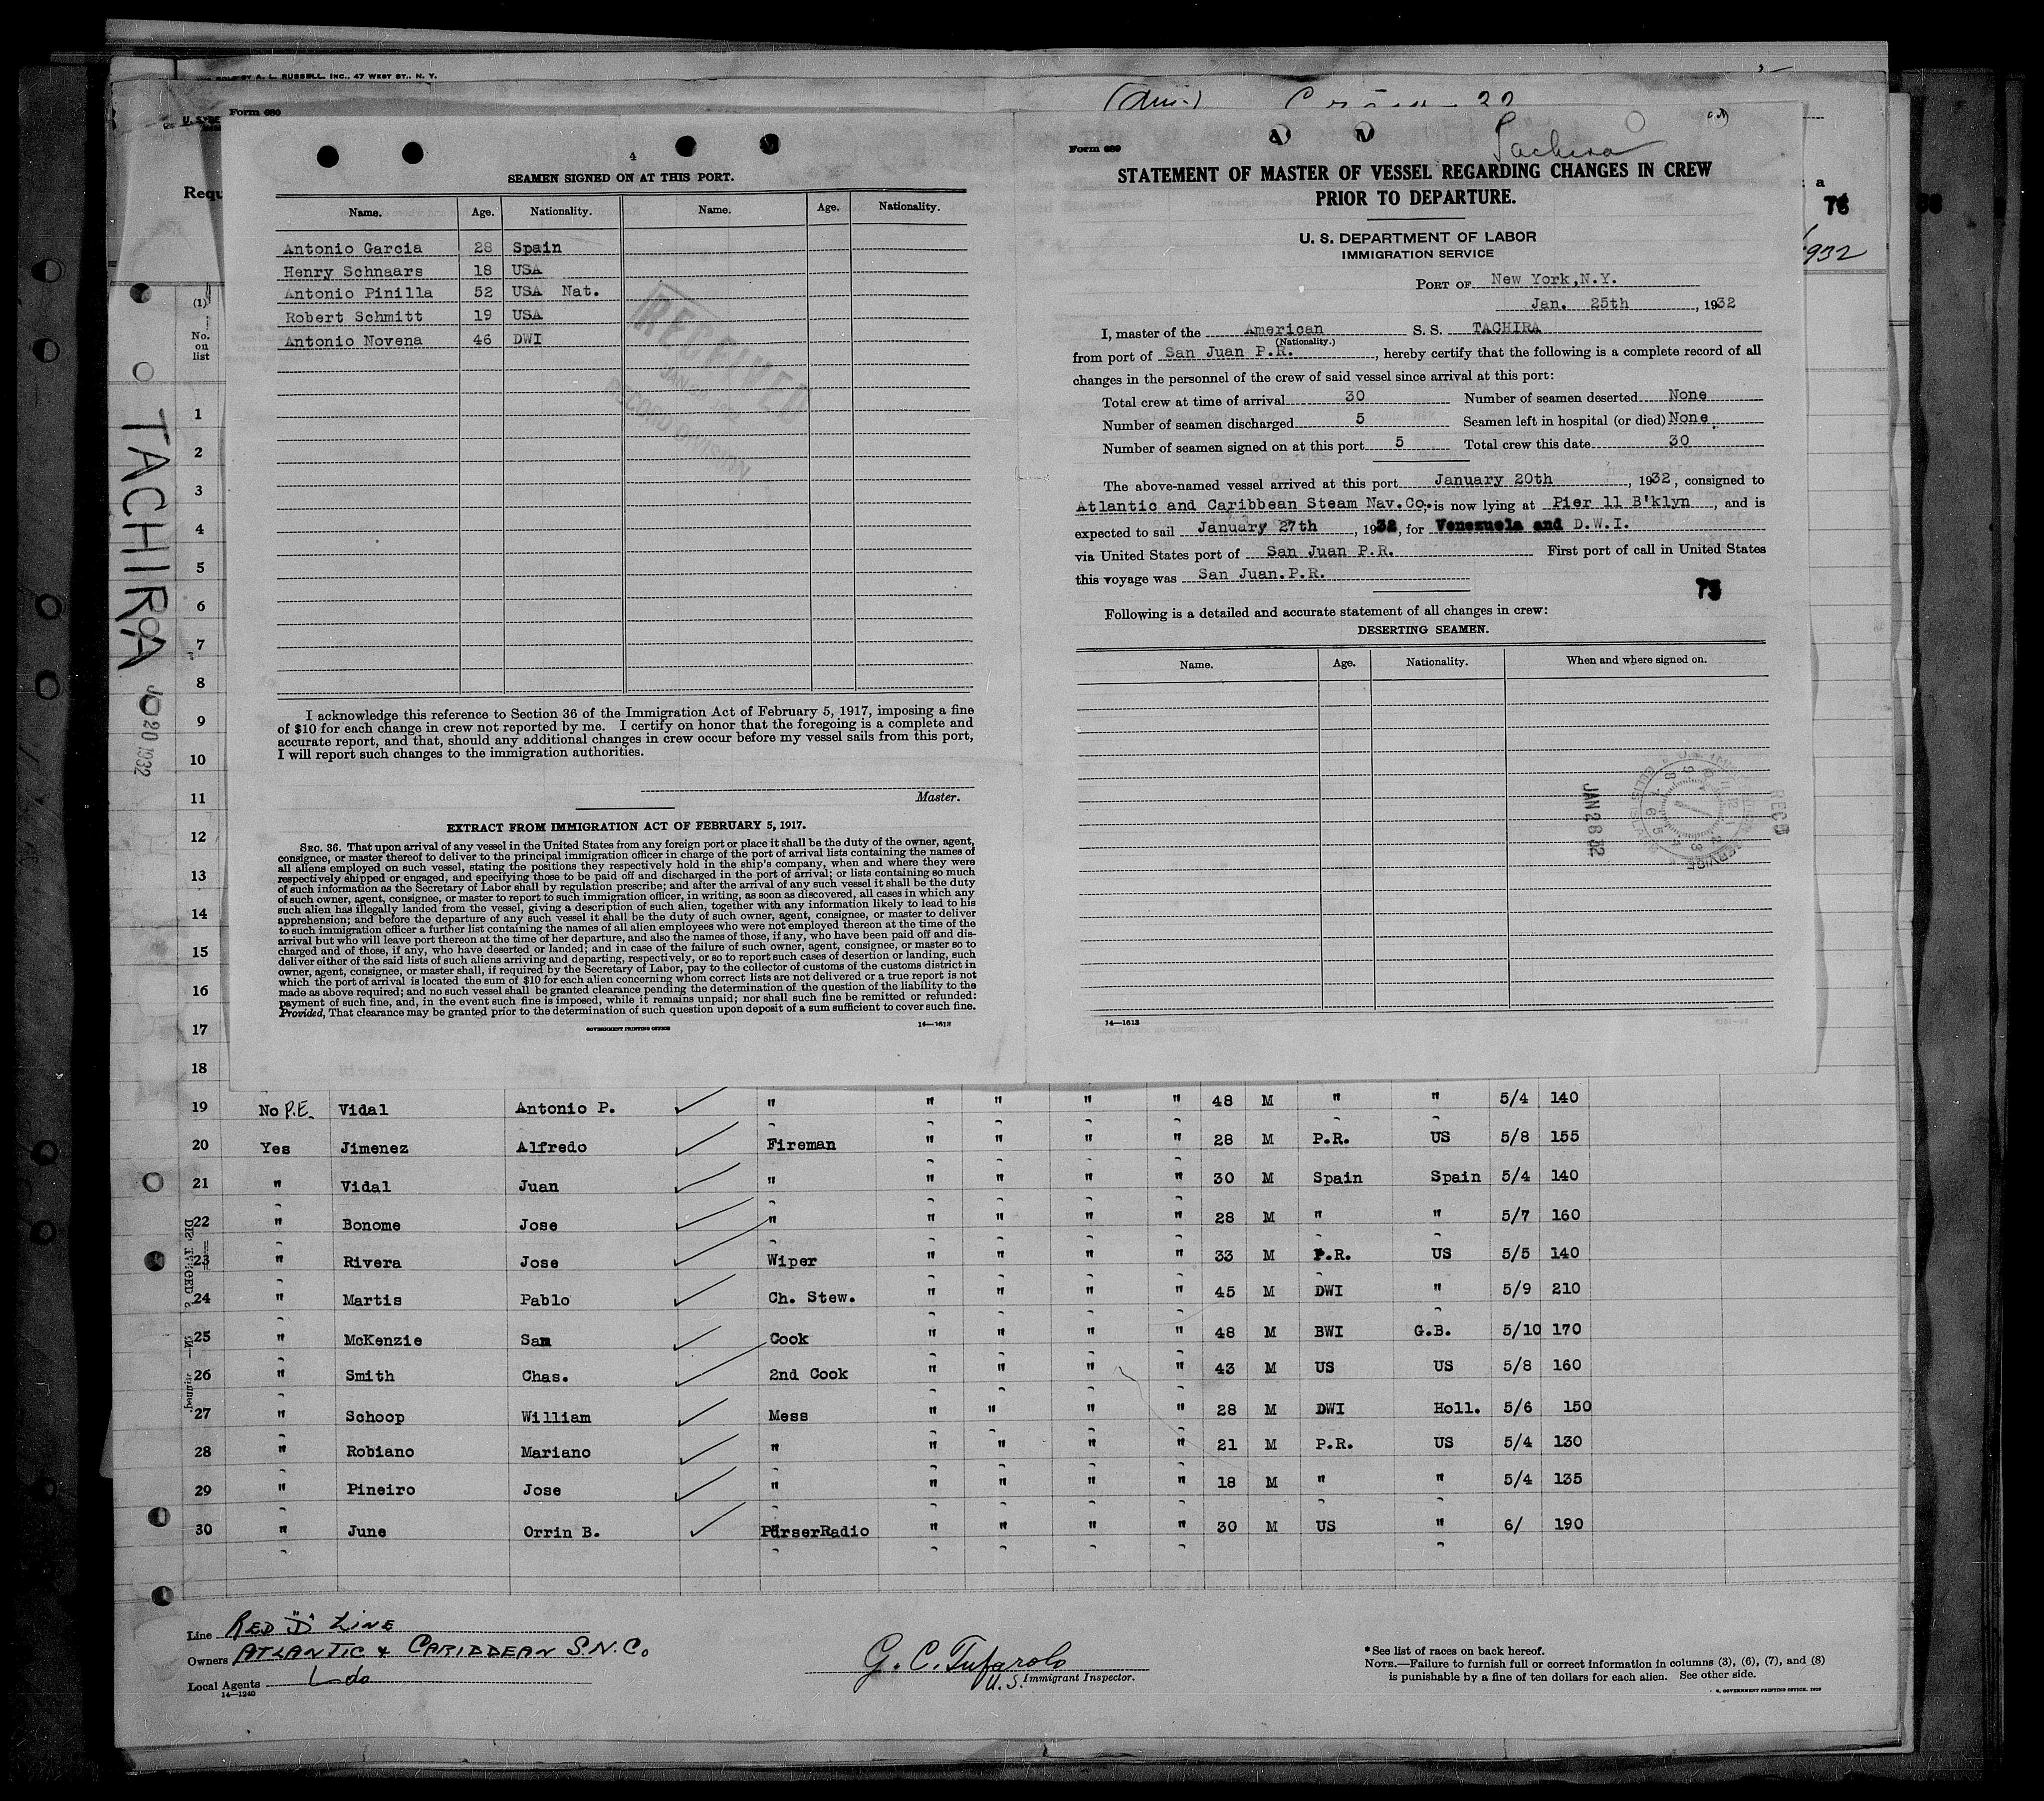 BY A. L. RUSSELL, INC., 47 WEST ST., N. Y.
Form 680
Requ
(1)
No.
on
list
TACHIRA
20 1932
1
2
3
4
5
6
7
8
9
10
11
12
13
14
15
16
17
18
4
SEAMEN SIGNED ON AT THIS PORT.
Name. Age. Nationality. Name. Age. Nationality.
Antonio Garcia 28 Spain
Henry Schnaars 18 USA
Antonio Pinilla 52 USA Nat.
Robert Schmitt 19 USA
Antonio Novena 46 DWI
RECEIVED
RECORD DIVISION
I acknowledge this reference to Section 36 of the Immigration Act of February 5, 1917, imposing a fine
of $10 for each change in crew not reported by me. I certify on honor that the foregoing is a complete and
accurate report, and that, should any additional changes in crew occur before my vessel sails from this port,
I will report such changes to the immigration authorities.
Master.
EXTRACT FROM IMMIGRATION ACT OF FEBRUARY 5, 1917.
SEC. 36. That upon arrival of any vessel in the United States from any foreign port or place it shall be the duty of the owner, agent,
consignee, or master thereof to deliver to the principal immigration officer in charge of the port of arrival lists containing the names of
all aliens employed on such vessel, stating the positions they respectively hold in the ship's company, when and where they were
respectively shipped or engaged, and specifying those to be paid off and discharged in the port of arrival; or lists containing so much
of such information as the Secretary of Labor shall by regulation prescribe; and after the arrival of any such vessel it shall be the duty
of such owner, agent, consignee, or master to report to such immigration officer, in writing, as soon as discovered, all cases in which any
such alien has illegally landed from the vessel, giving a description of such alien, together with any information likely to lead to his
apprehension; and before the departure of any such vessel it shall be the duty of such owner, agent, consignee, or master to deliver
to such immigration officer a further list containing the names of all alien employees who were not employed thereon at the time of the
arrival but who will leave port thereon at the time of her departure, and also the names of those, if any, who have been paid off and dis-
charged and of those, if any, who have deserted or landed; and in case of the failure of such owner, agent, consignee, or master so to
deliver either of the said lists of such aliens arriving and departing, respectively, or so to report such cases of desertion or landing, such
owner, agent, consignee, or master shall, if required by the Secretary of Labor, pay to the collector of customs of the customs district in
which the port of arrival is located the sum of $10 for each alien concerning whom correct lists are not delivered or a true report is not
made as above required; and no such vessel shall be granted clearance pending the determination of the question of the liability to the
payment of such fine, and, in the event such fine is imposed, while it remains unpaid; nor shall such fine be remitted or refunded:
Provided, That clearance may be granted prior to the determination of such question upon deposit of a sum sufficient to cover such fine.
GOVERNMENT PRINTING OFFICE 14—1613
Tachira
Form 689
STATEMENT OF MASTER OF VESSEL REGARDING CHANGES IN CREW
PRIOR TO DEPARTURE.
U. S. DEPARTMENT OF LABOR
IMMIGRATION SERVICE
PORT OF New York,N.Y.
Jan. 25th, 1932
I, master of the American S. S. TACHIRA
(Nationality.)
from port of San Juan P.R., hereby certify that the following is a complete record of all
changes in the personnel of the crew of said vessel since arrival at this port:
Total crew at time of arrival 30 Number of seamen deserted None
Number of seamen discharged 5 Seamen left in hospital (or died) None.
Number of seamen signed on at this port 5 Total crew this date 30
The above-named vessel arrived at this port January 20th, 1932, consigned to
Atlantic and Caribbean Steam Nav.Co. is now lying at Pier 11 B'klyn, and is
expected to sail January 27th, 1932, for Venezuela and D.W.I.
via United States port of San Juan P.R. First port of call in United States
this voyage was San Juan.P.R.
Following is a detailed and accurate statement of all changes in crew:
DESERTING SEAMEN.
Name. Age. Nationality. When and where signed on.
JAN 28 32
REC'D
14—1613
a
76
1932
19 No P.E. Vidal Antonio P. " " " " " 48 M " " 5/4 140
20 Yes Jimenez Alfredo Fireman " " " " 28 M P.R. US 5/8 155
21 " Vidal Juan " " " " " 30 M Spain Spain 5/4 140
22 " Bonome Jose " " " " " 28 M " " 5/7 160
23 " Rivera Jose Wiper " " " " 33 M P.R. US 5/5 140
24 " Martis Pablo Ch. Stew. " " " " 45 M DWI " 5/9 210
25 " McKenzie Sam Cook " " " " 48 M BWI G.B. 5/10 170
26 " Smith Chas. 2nd Cook " " " " 43 M US US 5/8 160
27 " Schoop William Mess " " " " 28 M DWI Holl. 5/6 150
28 " Robiano Mariano " " " " " 21 M P.R. US 5/4 130
29 " Pineiro Jose " " " " " 18 M " " 5/4 135
30 " June Orrin B. PurserRadio " " " " 30 M US " 6/ 190
Line RED "D" LINE
Owners ATLANTIC & CARIBBEAN S.N.Co
Local Agents do
14—1240
G. C. Tufarolo
U.S. Immigrant Inspector.
* See list of races on back hereof.
NOTE.—Failure to furnish full or correct information in columns (3), (6), (7), and (8)
is punishable by a fine of ten dollars for each alien. See other side.